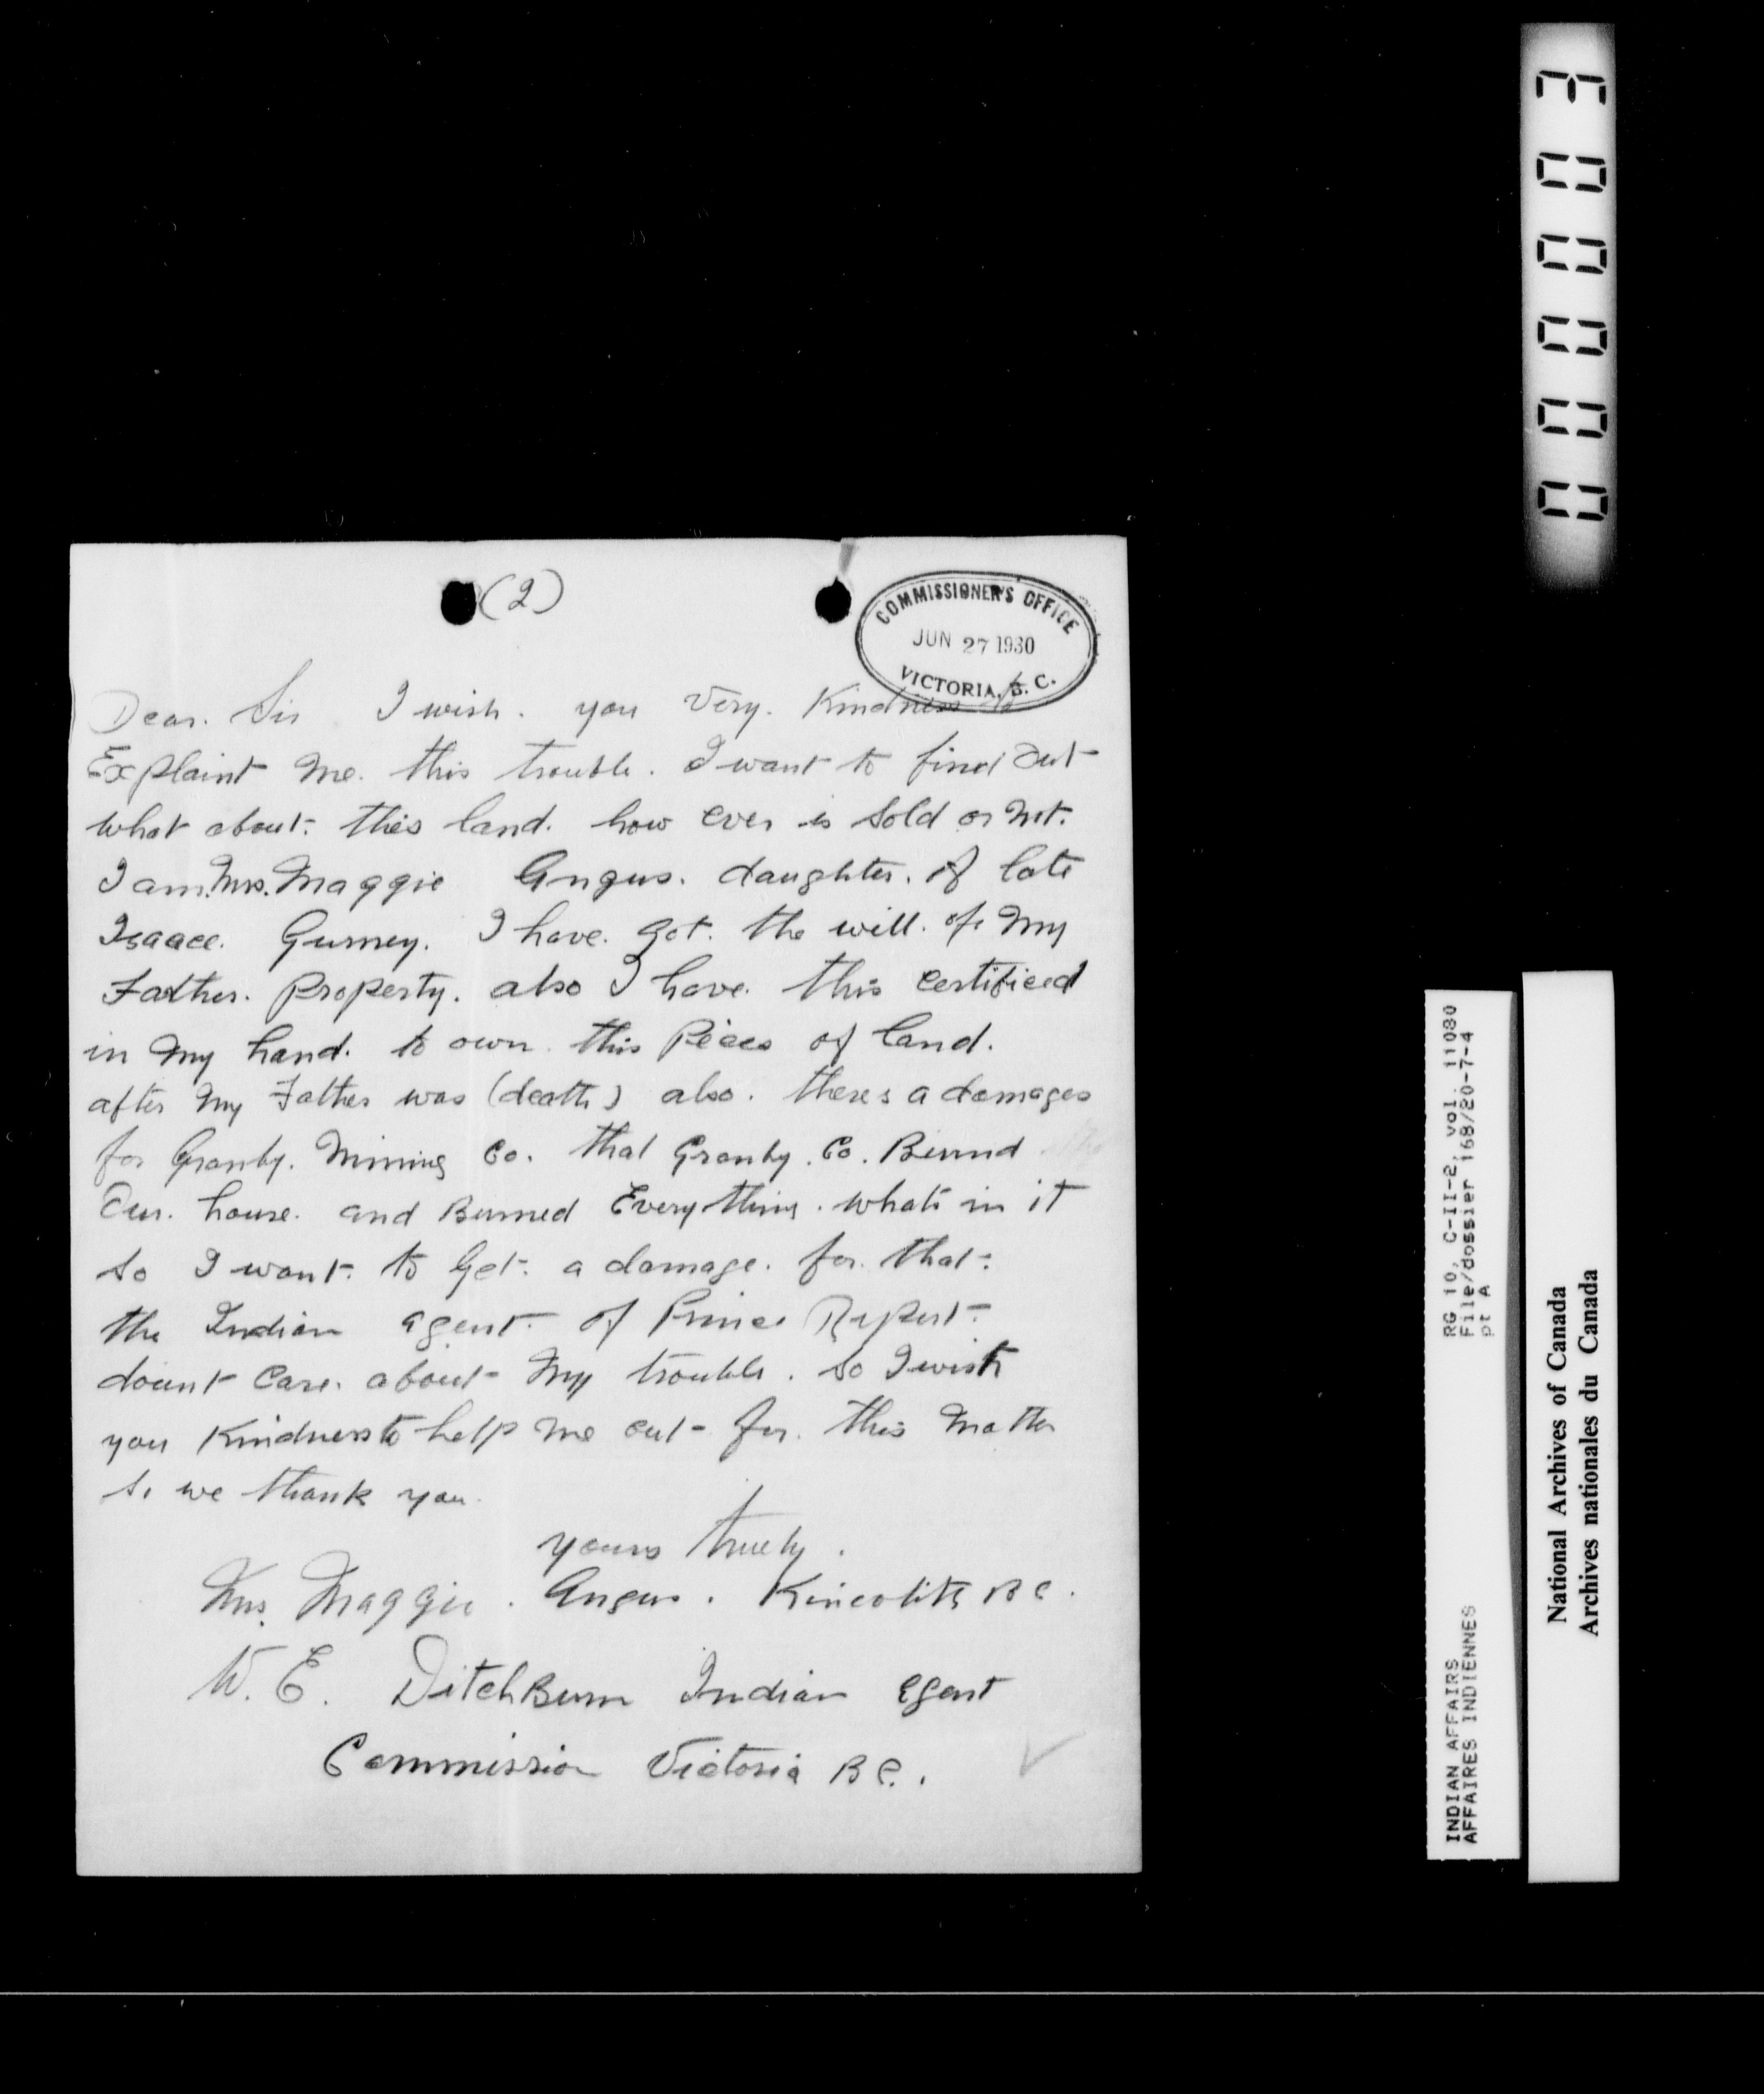 (2)
COMMISSIONER'S OFFICE
JUN 27 1930
VICTORIA, B. C.
Dear. Sir I wish. you very. Kindness to
Explaint me. this trouble. I want to find out
what about. this land. how ever is sold or not.
I am. Mrs. Maggie Angus. daughter. of late
Isaace. Gurney. I have. got. the will. of. my
Father. property. also I have. this certificed
in my hand. to own. this Pieces of land.
after my Father was (death) also. theres a damages
for Granby. Mining Co. that Granby. Co. Burnd
Our. house. and Burned Everything. whats in it
so I want. to get. a damage. for. that.
the Indian agent. of Prince Rypert.
dount care. about my trouble. so I wish
you Kindness to help me out for. this matter
so we thank you.
yours truely.
Mrs. Maggie. Angus. Kincolith BC.
W. E. DitchBurn Indian agent
Commission Victoria BC.
000003
RG 10, C-II-2, vol. 11080
File/dossier 168/20-7-4
pt A
INDIAN AFFAIRS
AFFAIRES INDIENNES
National Archives of Canada
Archives nationales du Canada